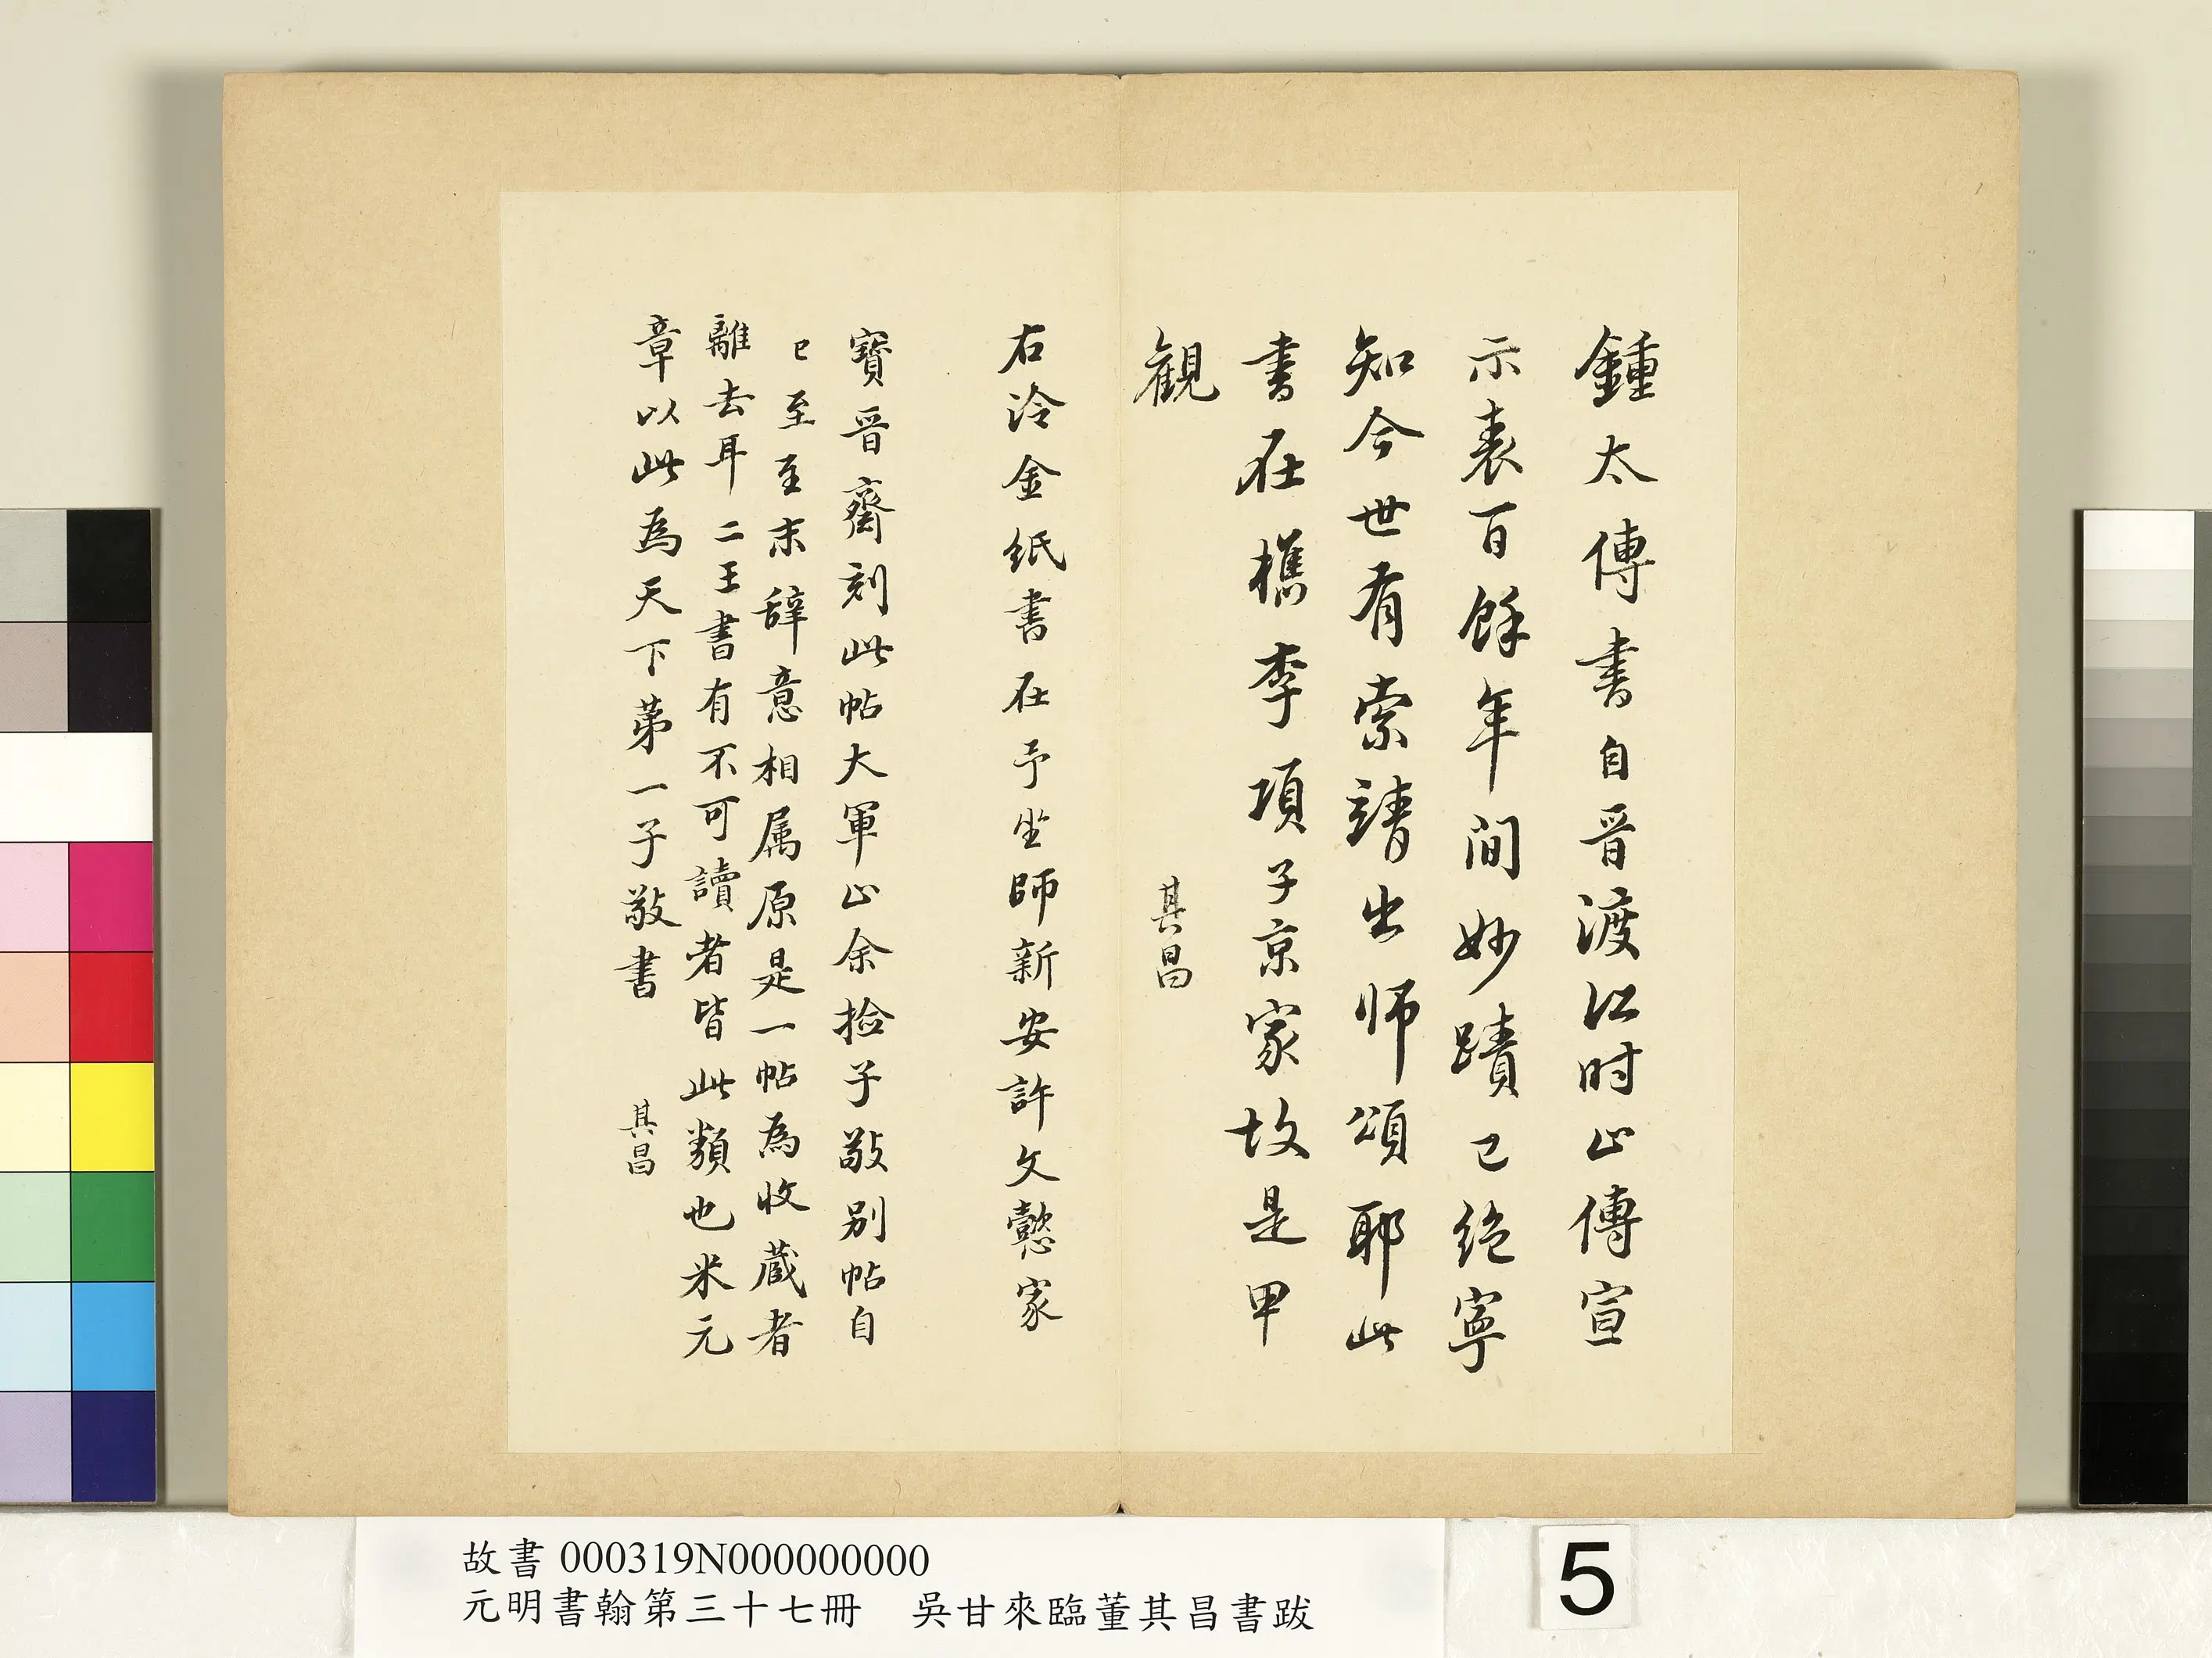 鍾太傅書自晉渡江時止傳宣
示表百餘年間妙蹟已絕寧
知今世有索靖出師頌耶此
書在檇李項子京家故是甲
觀
其昌
右冷金紙書在予坐師新安許文懿家
寶晉齋刻此帖大軍止余撿子敬別帖自
已至至末辭意相属原是一帖為收蔵者
離去耳二王書有不可讀者皆此類也米元
章以此為天下第一子敬書
其昌
故書 000319N000000000
元明書翰第三十七冊　吳甘來臨董其昌書跋
5